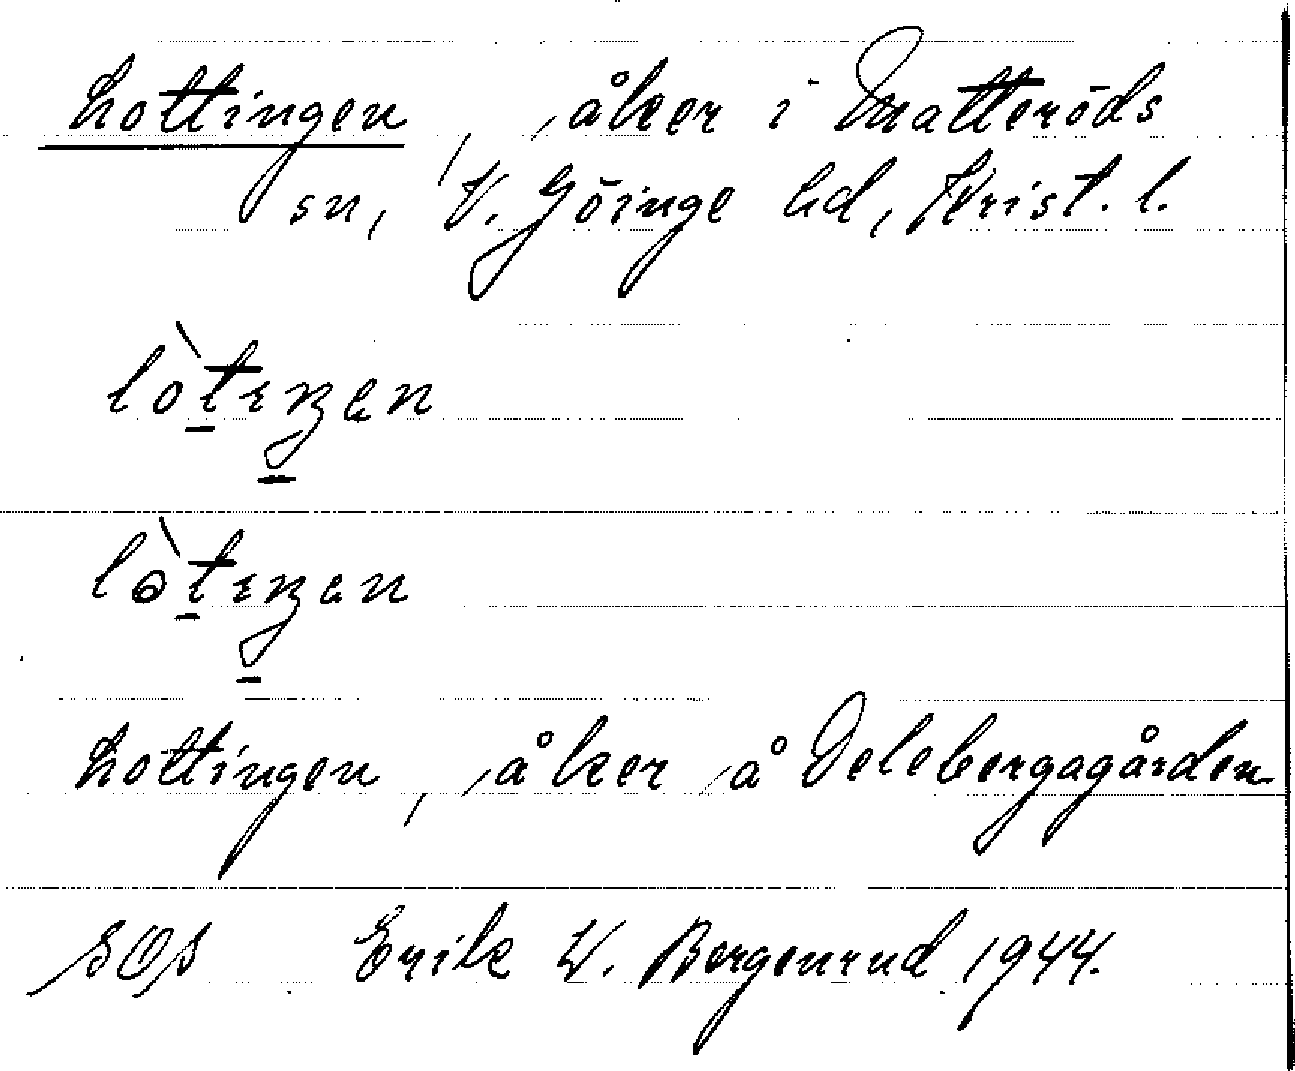 Lottingen, åker i Matteröds
sn, V. Göinge hd, Krist. l.
Lottingen, åker å Delebergagården
SOS Erik W. Bergenrud 1944.